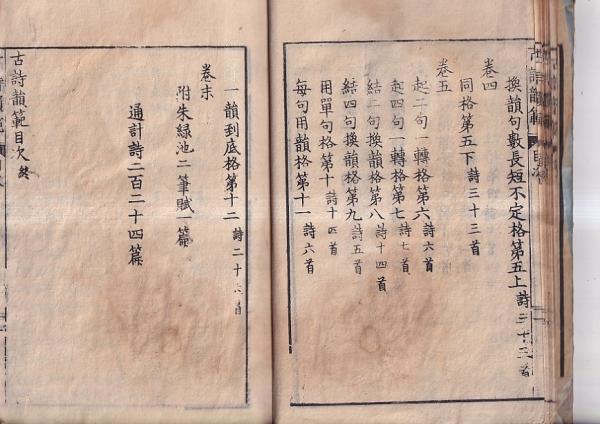 換韻句數長短不定格第五上 詩三十三首
卷四
同格第五下 詩三十三首
卷五
起二句一轉格第六 詩六首
起四句一轉格第七 詩七首
結二句換韻格第八 詩十四首
結四句換韻格第九 詩五首
用單句格第十 詩十四首
每句用韻格第十一 詩六首
卷末
一韻到底格第十二 詩二十六首
附朱綠池二筆賦一篇
通計詩二百二十四篇
古詩韻範目次 終